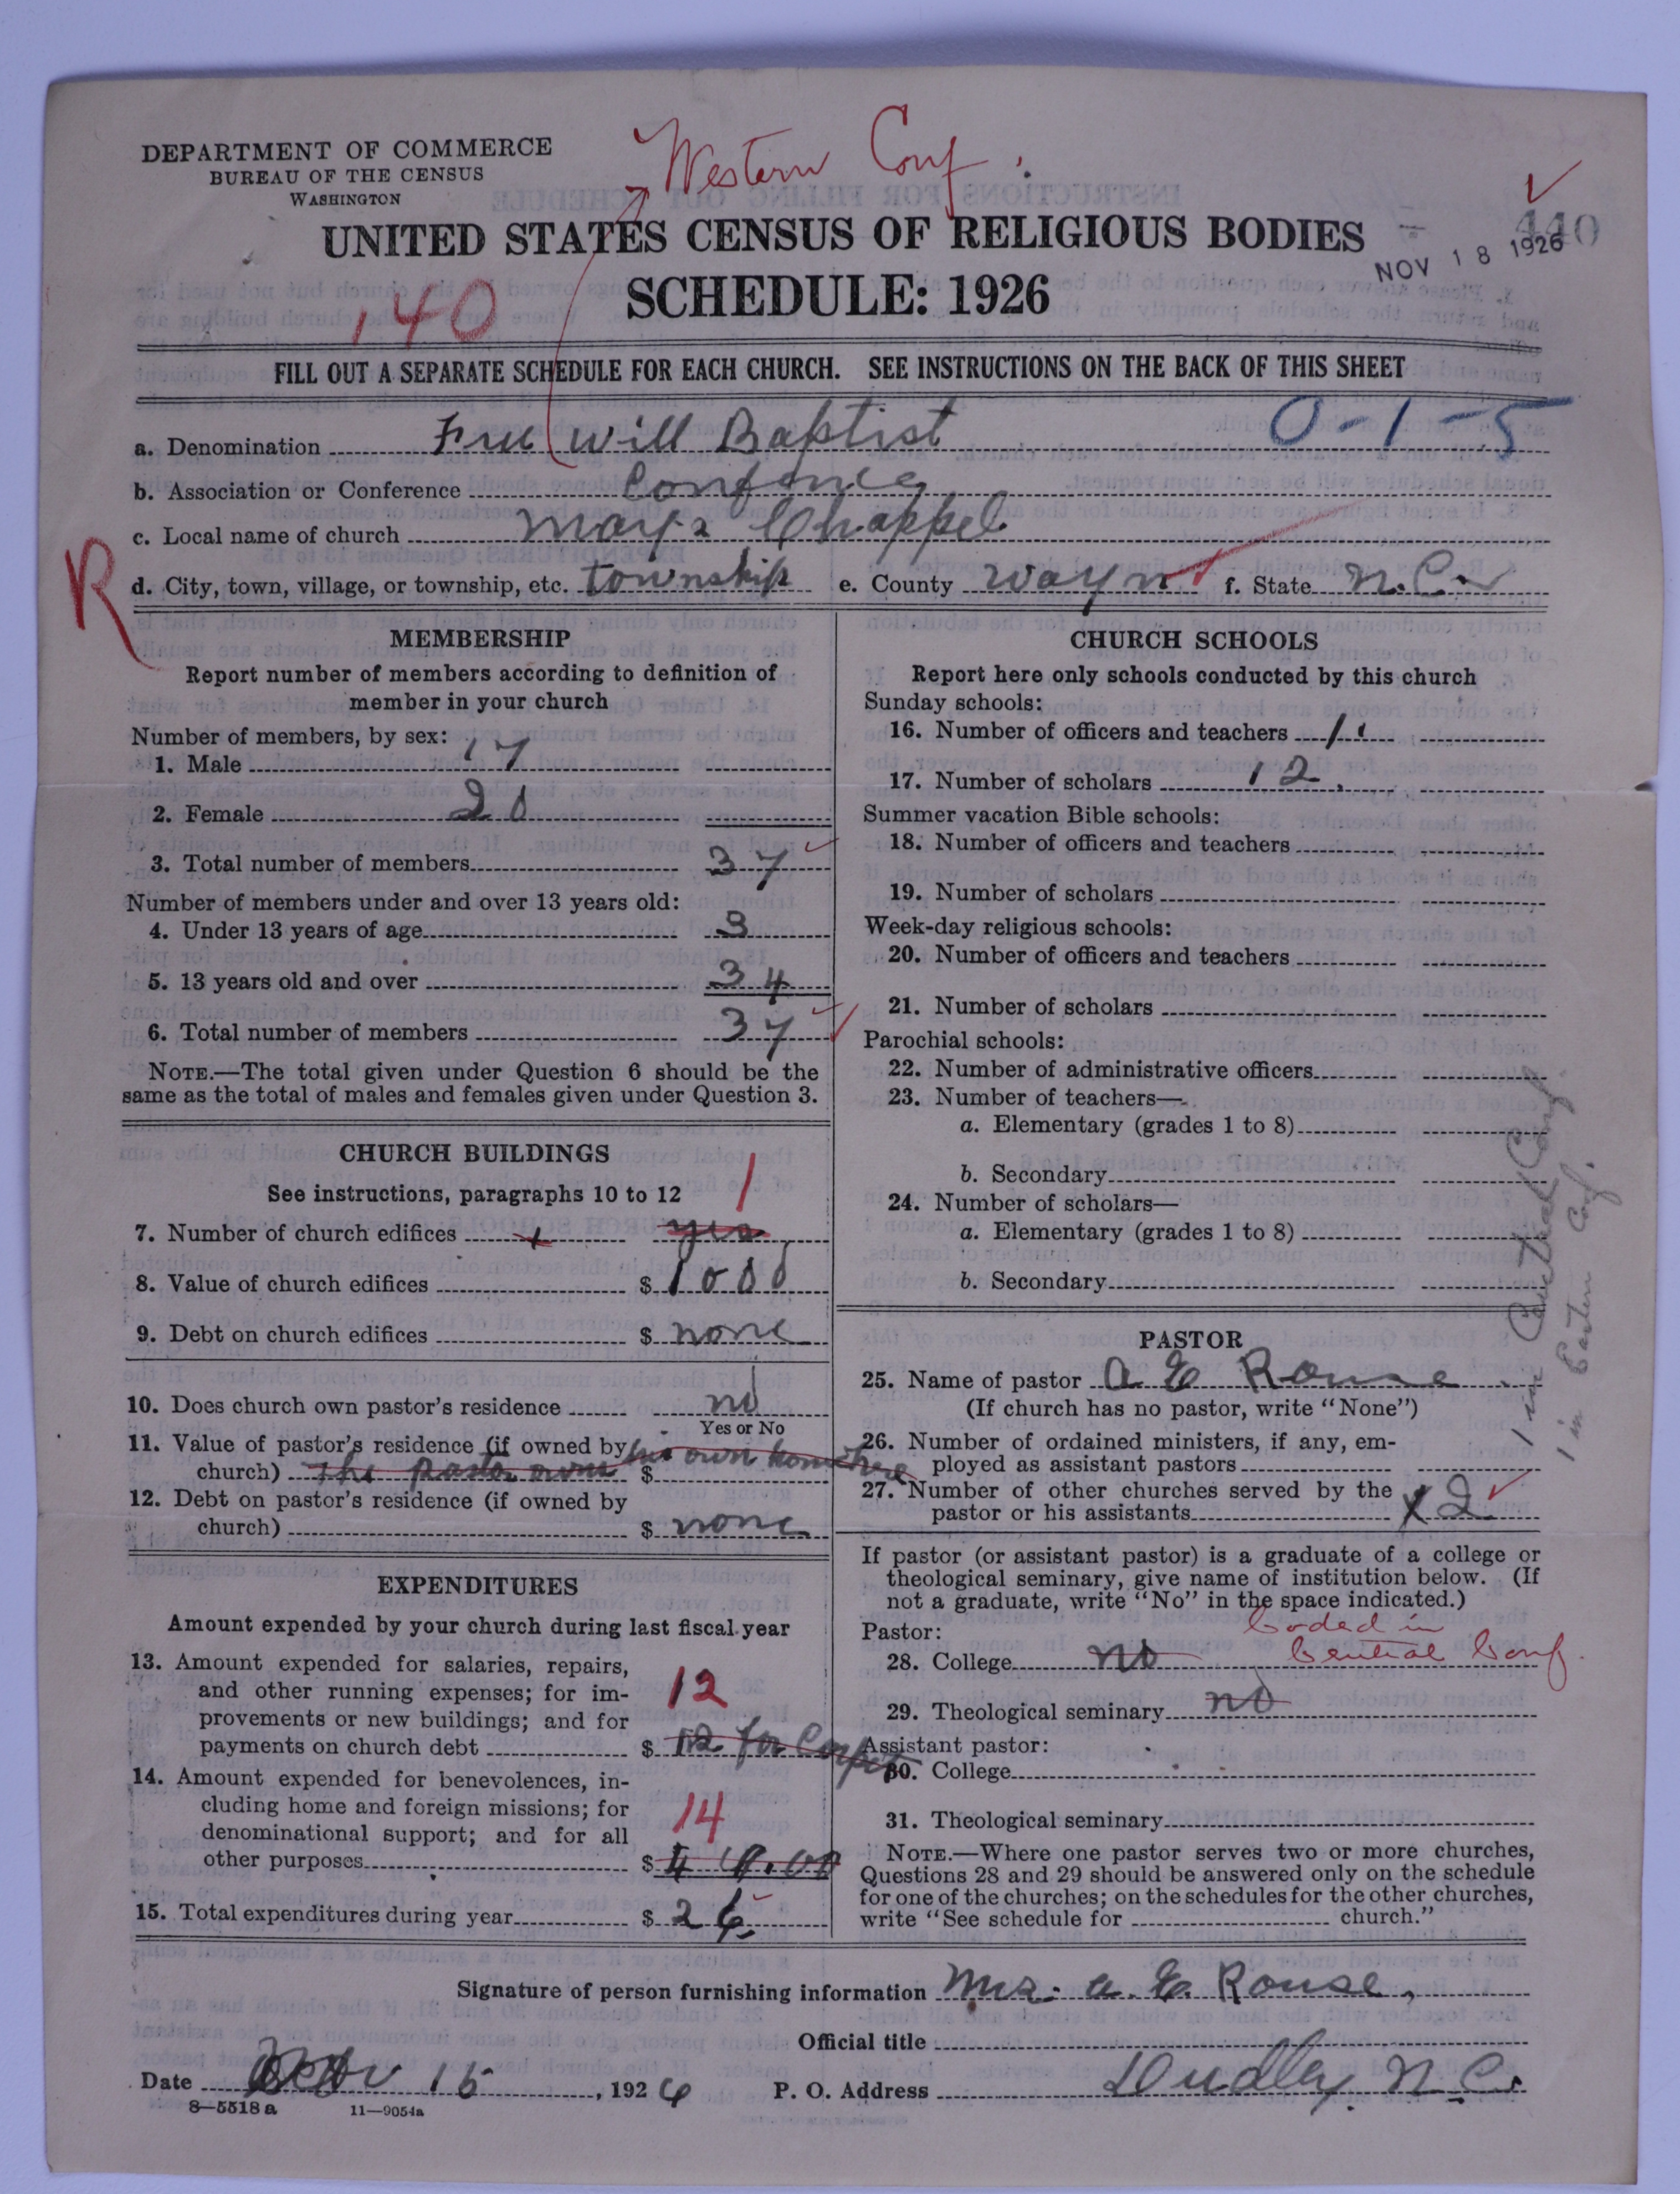 DEPARTMENT OF COMMERCE
BUREAU OF THE CENSUS
WASHINGTON
Western Conf.
UNITED STATES CENSUS OF RELIGIOUS BODIES
SCHEDULE: 1926
440
NOV 18 1926
140
FILL OUT A SEPARATE SCHEDULE FOR EACH CHURCH. SEE INSTRUCTIONS ON THE BACK OF THIS SHEET
a. Denomination Free Will Baptist 0-1-5
b. Association or Conference
c. Local name of church Mays Chappel
R
d. City, town, village, or township, etc. township e. County Wayne f. State N.C.
MEMBERSHIP
Report number of members according to definition of
member in your church
Number of members, by sex:
1. Male 17
2. Female 20
3. Total number of members 37
Number of members under and over 13 years old:
4. Under 13 years of age 3
5. 13 years old and over 34
6. Total number of members 37
NOTE.—The total given under Question 6 should be the
same as the total of males and females given under Question 3.
CHURCH BUILDINGS
See instructions, paragraphs 10 to 12 1
7. Number of church edifices yes
8. Value of church edifices $ 1000
9. Debt on church edifices $ none
10. Does church own pastor's residence no
Yes or No
11. Value of pastor's residence (if owned by his own home here
church) The pastor owns $
12. Debt on pastor's residence (if owned by
church) $ none
EXPENDITURES
Amount expended by your church during last fiscal year
13. Amount expended for salaries, repairs,
and other running expenses; for im- 12
provements or new buildings; and for
payments on church debt $ 12 for Carpet
14. Amount expended for benevolences, in-
cluding home and foreign missions; for 14
denominational support; and for all
other purposes $
15. Total expenditures during year $ 26
CHURCH SCHOOLS
Report here only schools conducted by this church
Sunday schools:
16. Number of officers and teachers
17. Number of scholars 12
Summer vacation Bible schools:
18. Number of officers and teachers
19. Number of scholars
Week-day religious schools:
20. Number of officers and teachers
21. Number of scholars
Parochial schools:
22. Number of administrative officers
23. Number of teachers—
a. Elementary (grades 1 to 8)
b. Secondary
24. Number of scholars—
a. Elementary (grades 1 to 8)
b. Secondary
1 in Central Conf.
1 in Eastern Conf.
PASTOR
25. Name of pastor A E Rouse
(If church has no pastor, write "None")
26. Number of ordained ministers, if any, em-
ployed as assistant pastors
27. Number of other churches served by the
pastor or his assistants 2
If pastor (or assistant pastor) is a graduate of a college or
theological seminary, give name of institution below. (If
not a graduate, write "No" in the space indicated.)
Pastor: Coded in
28. College no Central Conf.
29. Theological seminary no
Assistant pastor:
30. College
31. Theological seminary
NOTE.—Where one pastor serves two or more churches,
Questions 28 and 29 should be answered only on the schedule
for one of the churches; on the schedules for the other churches,
write "See schedule for church."
Signature of person furnishing information Mrs. A. E. Rouse,
Official title
Date Nov 15, 1926 P. O. Address Dudley N.C.
8—5518 a 11—9054a